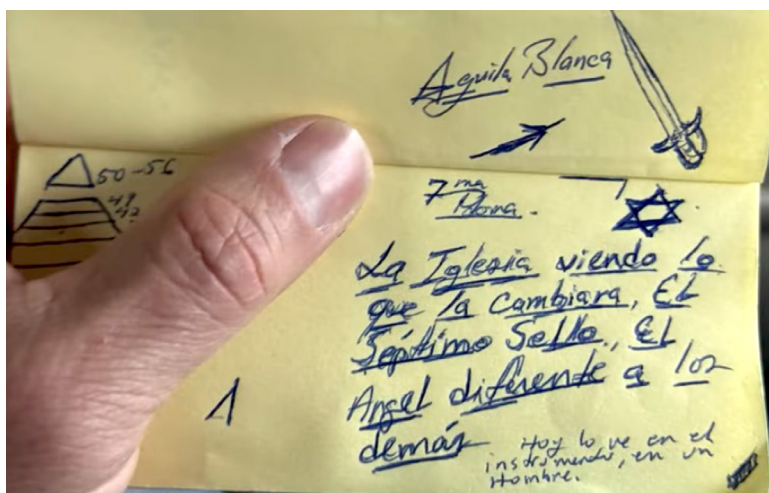 Aguila Blanca
50-56
49
42
7ma
Paloma.
La Iglesia viendo lo
que la cambiara, El
Séptimo Sello, El
Angel diferente a los
demás
Hoy lo ve en el
instrumento, en un
Hombre.
1